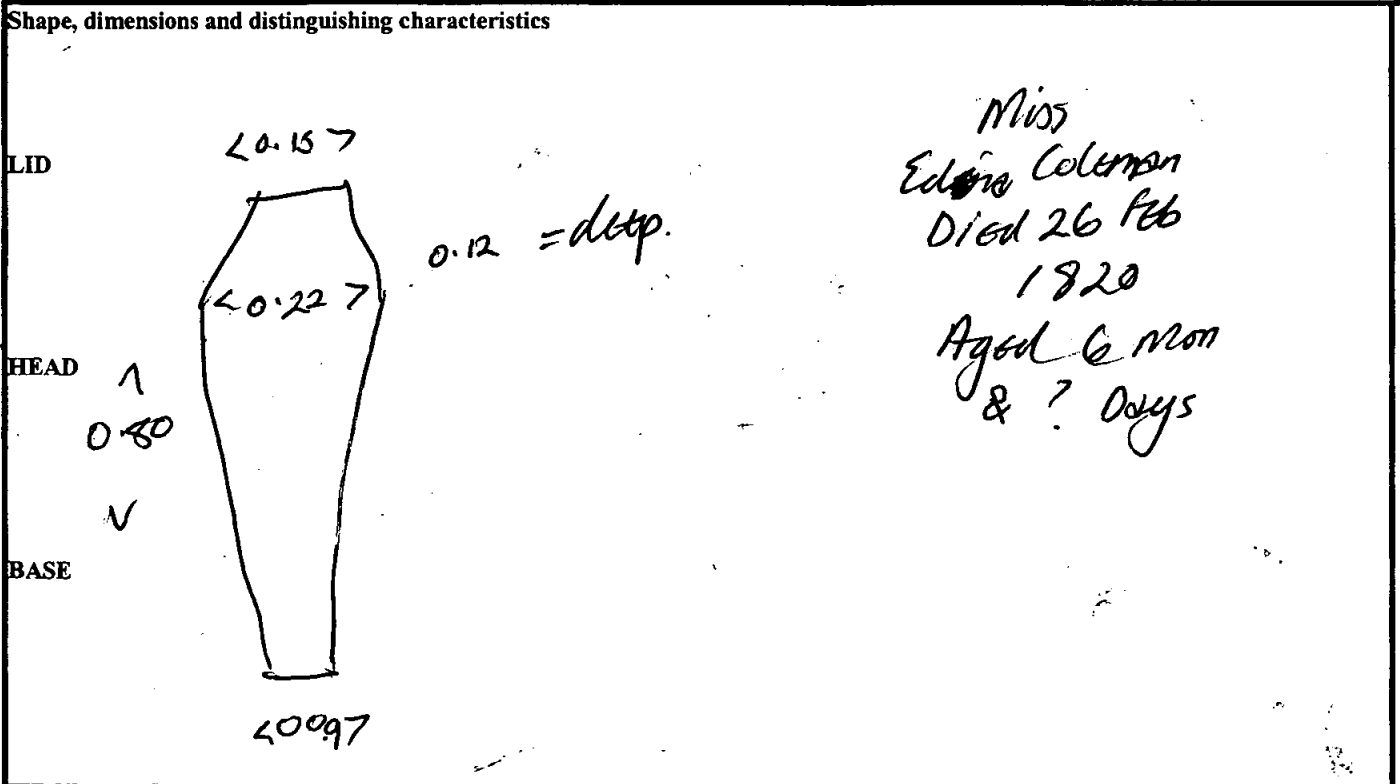 Shape, dimensions and distinguishing characteristics
LID
<0.15>
0.12 = deep.
<0.22>
HEAD
0.80
BASE
<0.097>
Miss
Coleman
Died 26 Feb
1820
Aged 6 Mon
& ? Days